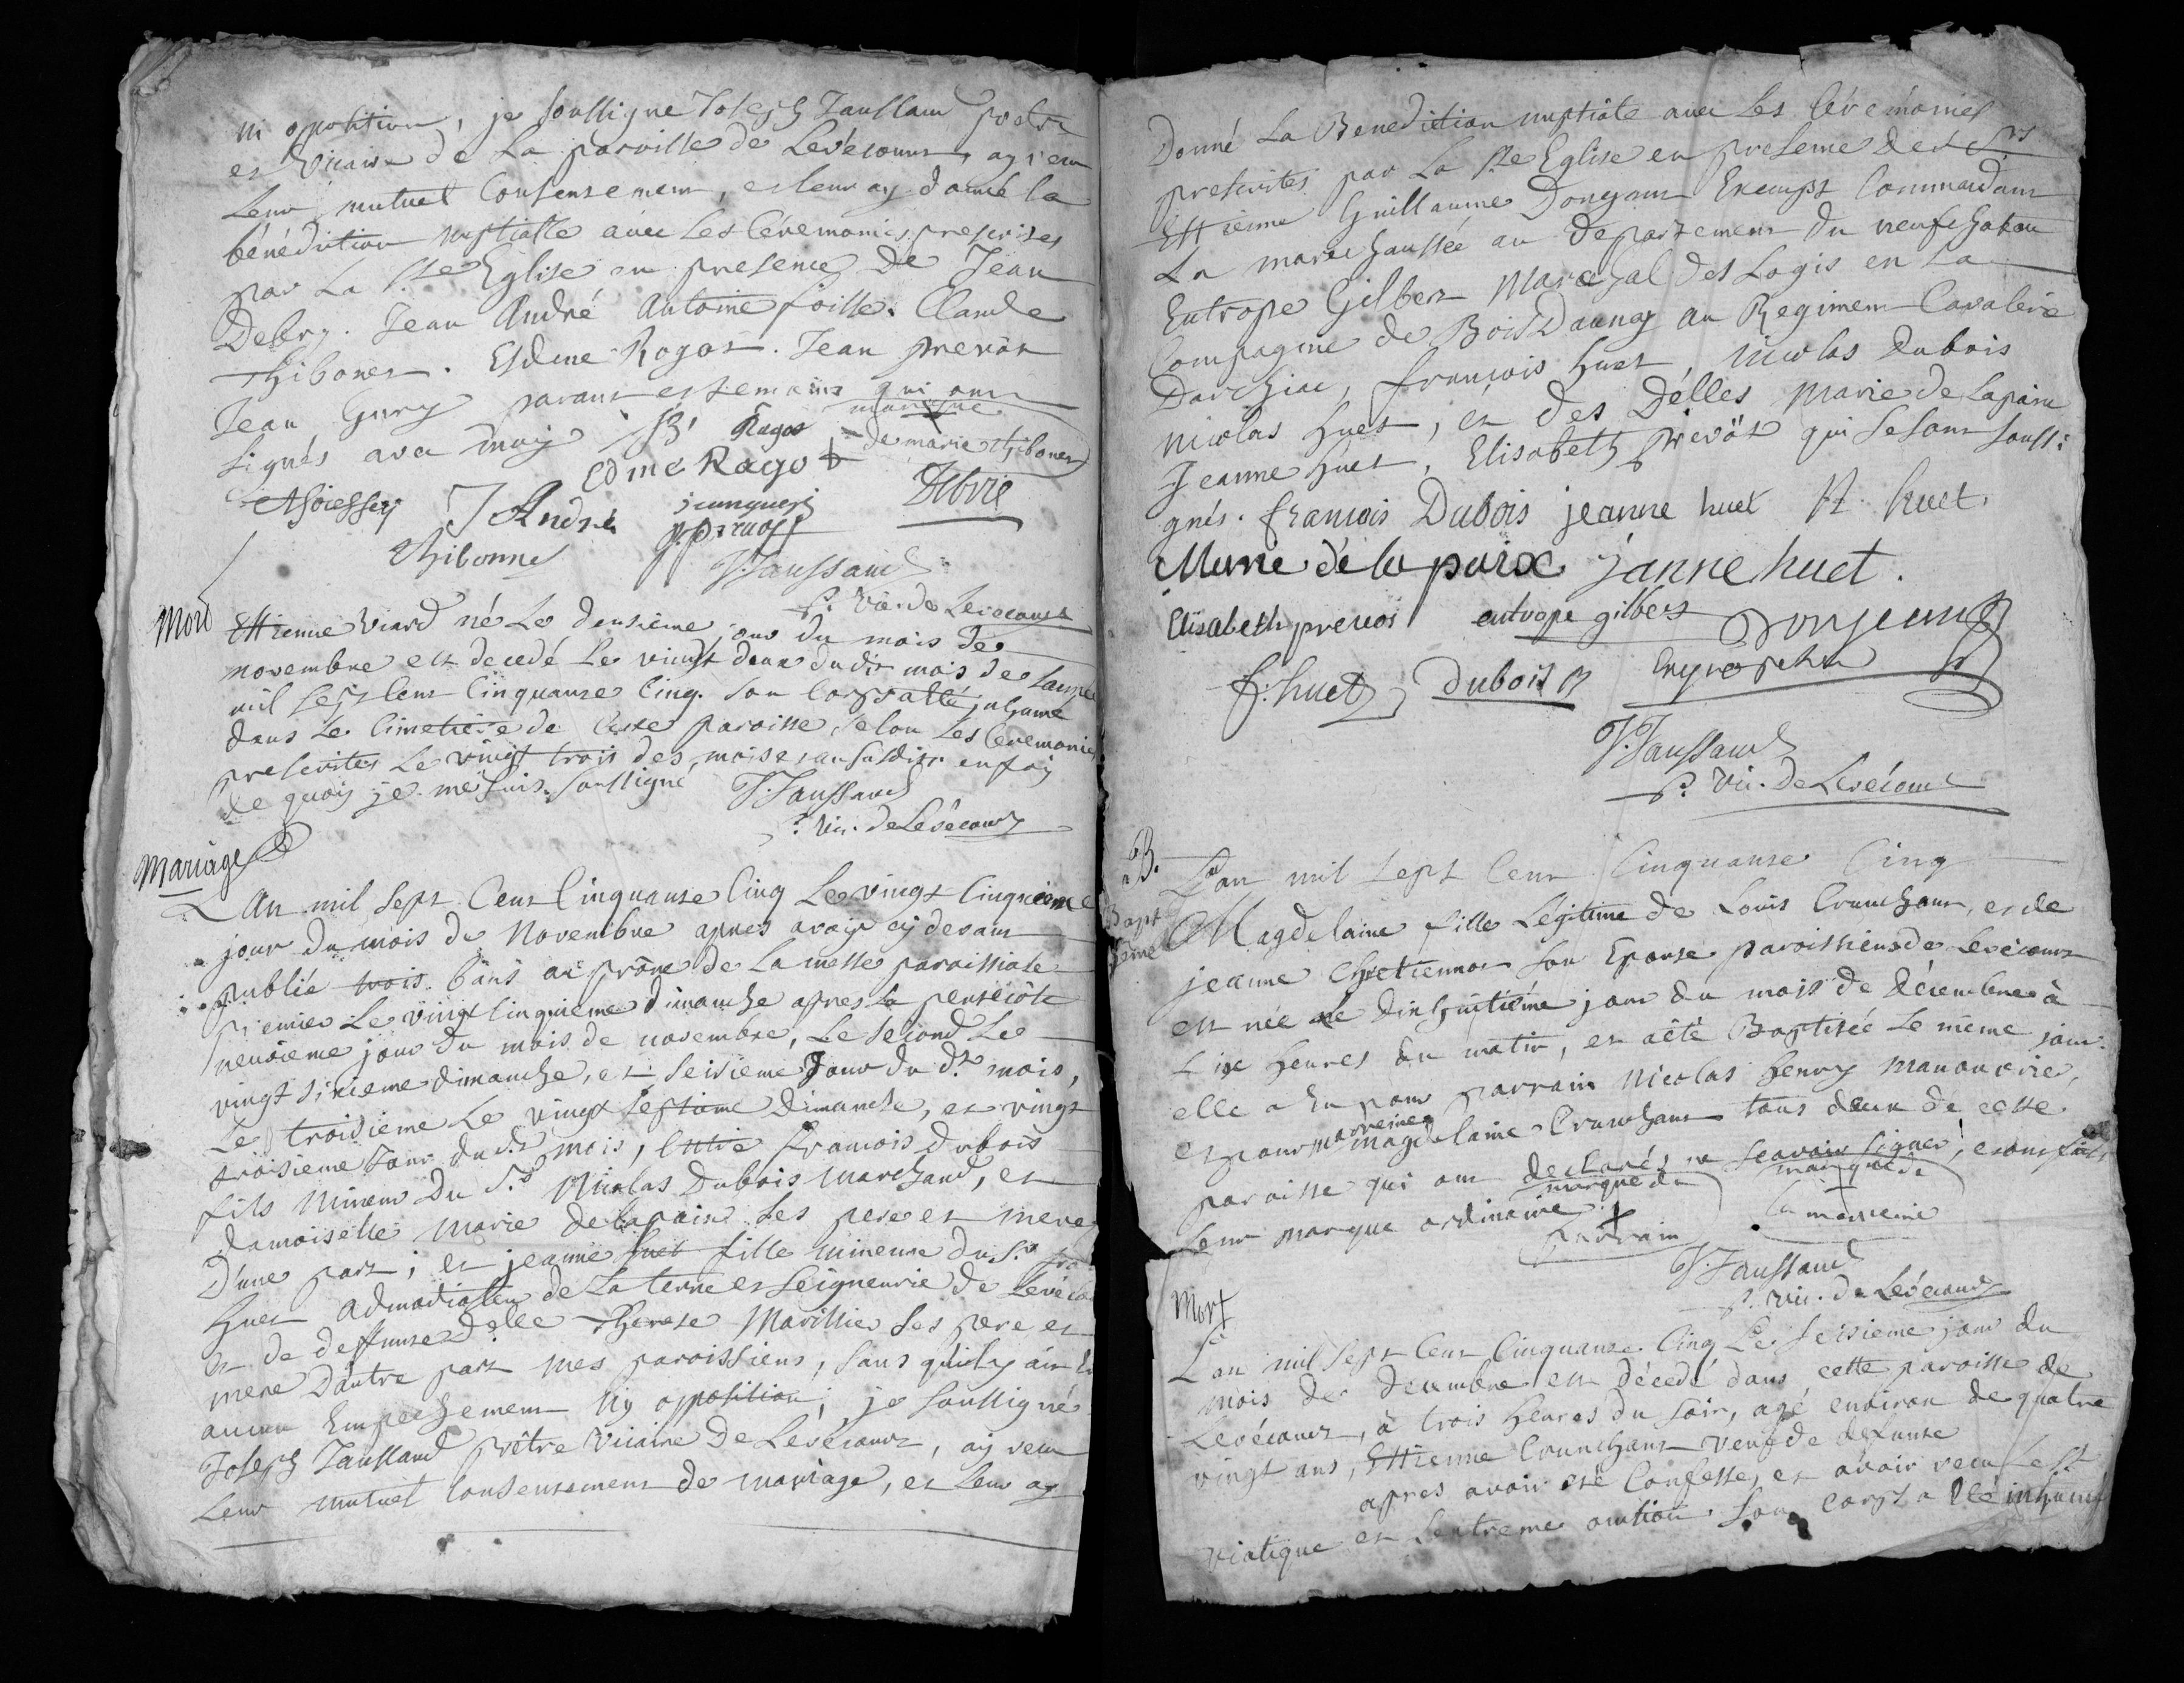 ni opposition, je soussigne Joseph Jaussaud pretre
et vicaire de la paroisse de Levécourt, ay reçu
leur mutuel consentement, et leur ay donné la
bénédiction nuptialle avec les Céremonies prescrites
par la Ste Eglise en presence de Jean
Debry. Jean André Antoine Foisse. Claude
Thibonet. Esdme Ragot. Jean prevôt
Jean Gury parans et temoins qui ont
signés avec moy
marque
de marie thibonet
Ragot
Edme Ragot
J André
Debrié
thibonne
J. Jaussaud
p. Vic. de Levecourt
Mort
Ettienne Viard né Le deusième jour du mois de
novembre est decedé Le vingt deux dudit mois de l'année
mil sept Cent Cinquante Cinq. son Corps a été inhumé
dans Le Cimetiere de Cette paroisse, selon Les Ceremonies
prescrites Le vingt trois des mois et an susdits en foy
de quoy je me suis soussigné J. Jaussaud
p. vic. de Levécourt
Mariage
L'An mil sept Cent Cinquante Cinq Le vingt Cinquieme
jour du mois de Novembre apres avoir cy devant
publié trois bans au prône de La messe paroissiale
premier Le vingt Cinquieme dimanche apres la pentecôte
neuvieme jour du mois de novembre, Le second Le
vingt sixieme dimanche, et seisieme Jour du dt mois,
Le troisieme Le vingt septieme Dimanche, et vingt
troisieme Jour dudt mois, Entre François dubois
fils mineur Du Sr Nicolas Dubois marchand, et
damoiselle marie delapaix ses pere et mere
D'une part; et jeanne huet fille mineure du Sr
huet admodiateur de La terre et seigneurie de
et de deffunte delle Therese Marillier ses pere et
mere D'autre part mes paroissiens, sans quil y ait
aucun Empechement ny opposition; je soussigné
Joseph Jaussaud prêtre Vicaire de Levécourt, ay reçu
Leur mutuel Consentement de mariage, et Leur ay
Donné La Benediction nuptiale avec Les Cérémonies
prescrites par La Ste Eglise en presence des Srs
Ettienne Guillaume Donjean Exempt Commandant
La marechaussée au departement du neufchateau
Eutrope Gilbert Marechal des Logis en La
Compagnie de Bois Daunay au Regiment Cavalerie
Darchiac, françois huet, nicolas Dubois
nicolas huet, et des Délles marie de Lapaix
Jeanne huet, Elisabeth prevôt qui se sont soussi
gnés. francois Dubois jeanne huet N huet.
Marie de la paix janne huet.
Elisabeth prevot eutrope gilbert Donjean
f. huet dubois
J. Jaussaud
p. Vic. de Levécourt
B.
Bapt
teme
L'an mil sept Cent Cinquante Cinq
Magdelaine fille Legitime de Louis Cruechant, et de
jeanne Chretiennot son Epouse paroissiens de Levécourt
est née le dix huitième jour du mois de décembre à
six heures du matin, et a été Baptisée Le même jour.
elle a Eu pour parrain Nicolas henry manouvrie,
et pour marreine magdelaine Cruechant tous deux de cette
paroisse qui ont declarés ne scavoir signer, et ont fait
Leur marque ordinaire
marque du
parrain
marque de
la marreine
J. Jaussaud
p. vic. de Levécourt
Mort
L'an mil sept Cent Cinquante Cinq Le seisieme jour du
mois de decembre est décedé dans cette paroisse de
Levécourt, à trois heures du soir, agé environ de quatre
vingt ans, Ettienne Cruechant veuf de defunte
apres avoir été Confesse, et avoir reçu Le St
viatique et L'extreme onction. son Corps a été inhumé